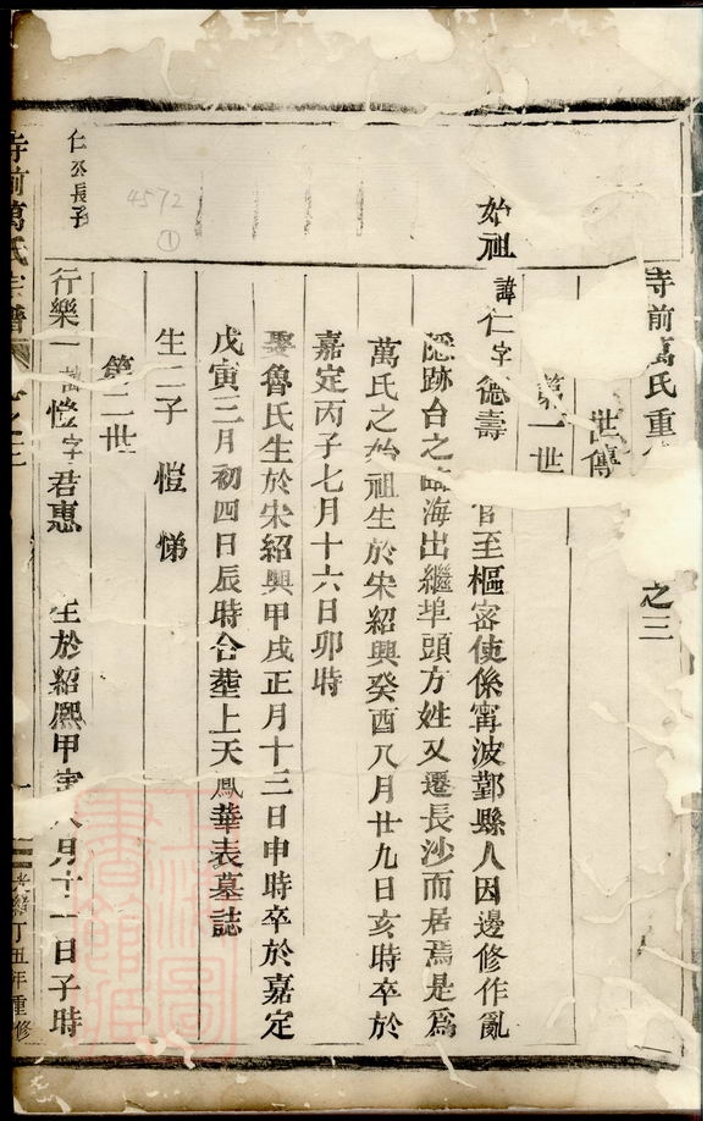 寺前萬氏重
之三
世傳
第一世
始祖 諱仁字德壽 官至樞密使係甯波鄞縣人因邊修作亂
隱跡台之臨海出繼埠頭方姓又遷長沙而居焉是為
萬氏之始祖生於宋紹興癸酉八月廿九日亥時卒於
嘉定丙子七月十六日卯時
娶魯氏生於宋紹興甲戌正月十三日申時卒於嘉定
戊寅三月初四日辰時合塟上天鳳華表墓誌
生二子 愷 悌
第二世
仁公長子 行樂一 諱愷字君惠 生於紹熙甲寅八月十一日子時
寺前萬氏宗譜
光緒丁丑年重修
上海圖書館藏
4572
①